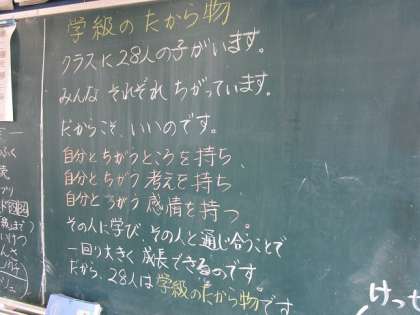 学級のたから物
クラスに28人の子がいます。
みんな それぞれ ちがっています。
だからこそ、いいのです。
自分とちがうところを持ち、
自分とちがう考えを持ち、
自分とちがう感情を持つ。
その人に学び、その人と通じ合うことで
一回り大きく成長できるのです。
だから、28人は学級のたから物です
けっせ